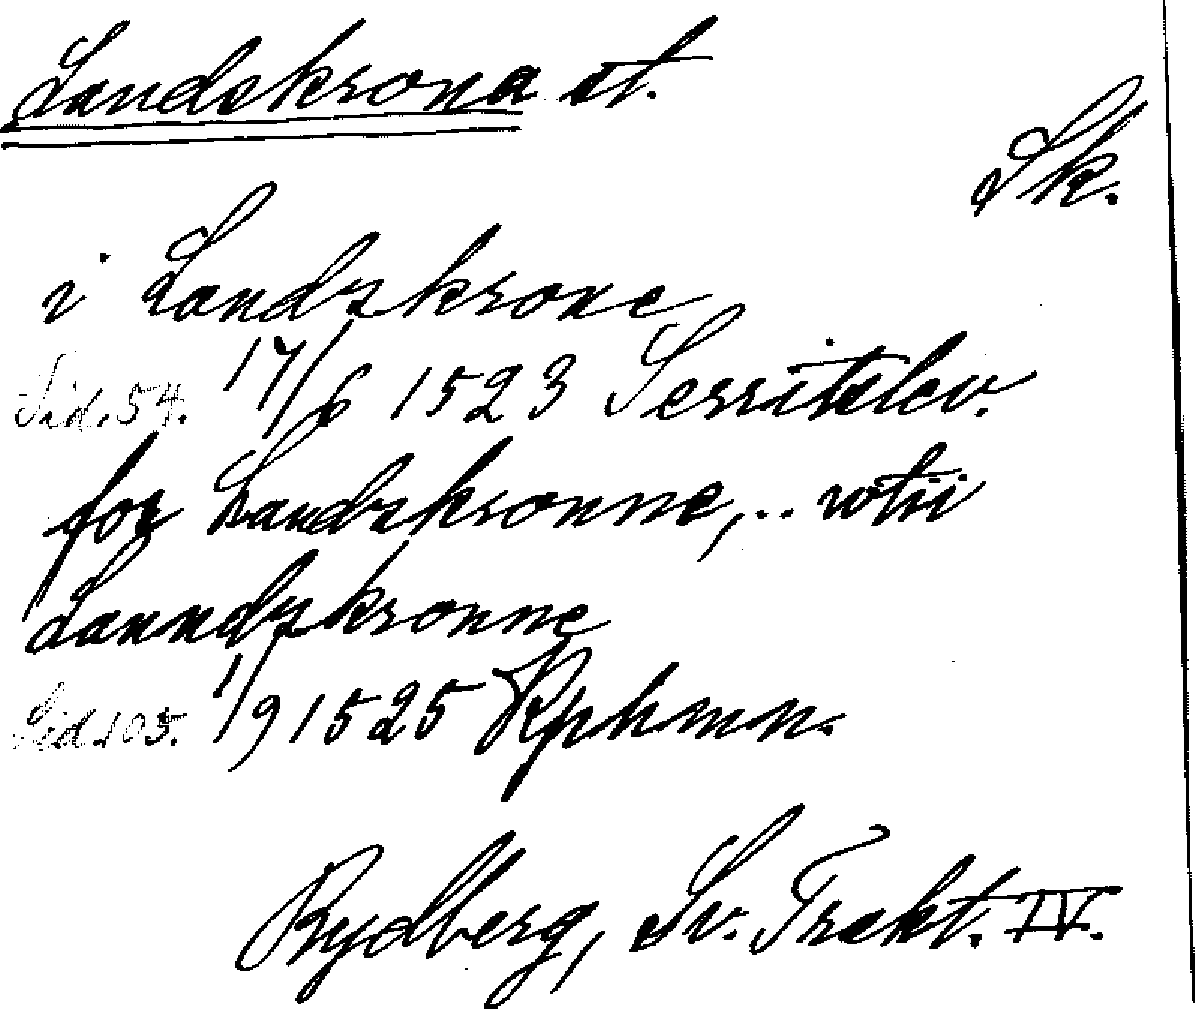 Landskrona st.
Sk.
i Landzkrone
Sid. 54. 17/6 1523 Serritzlev.
for Landzkronne, .. wtii
Lanndzkronne
Sid. 105. 1/9 1525 Kphmn.
Rydberg, Sv. Trakt. IV.